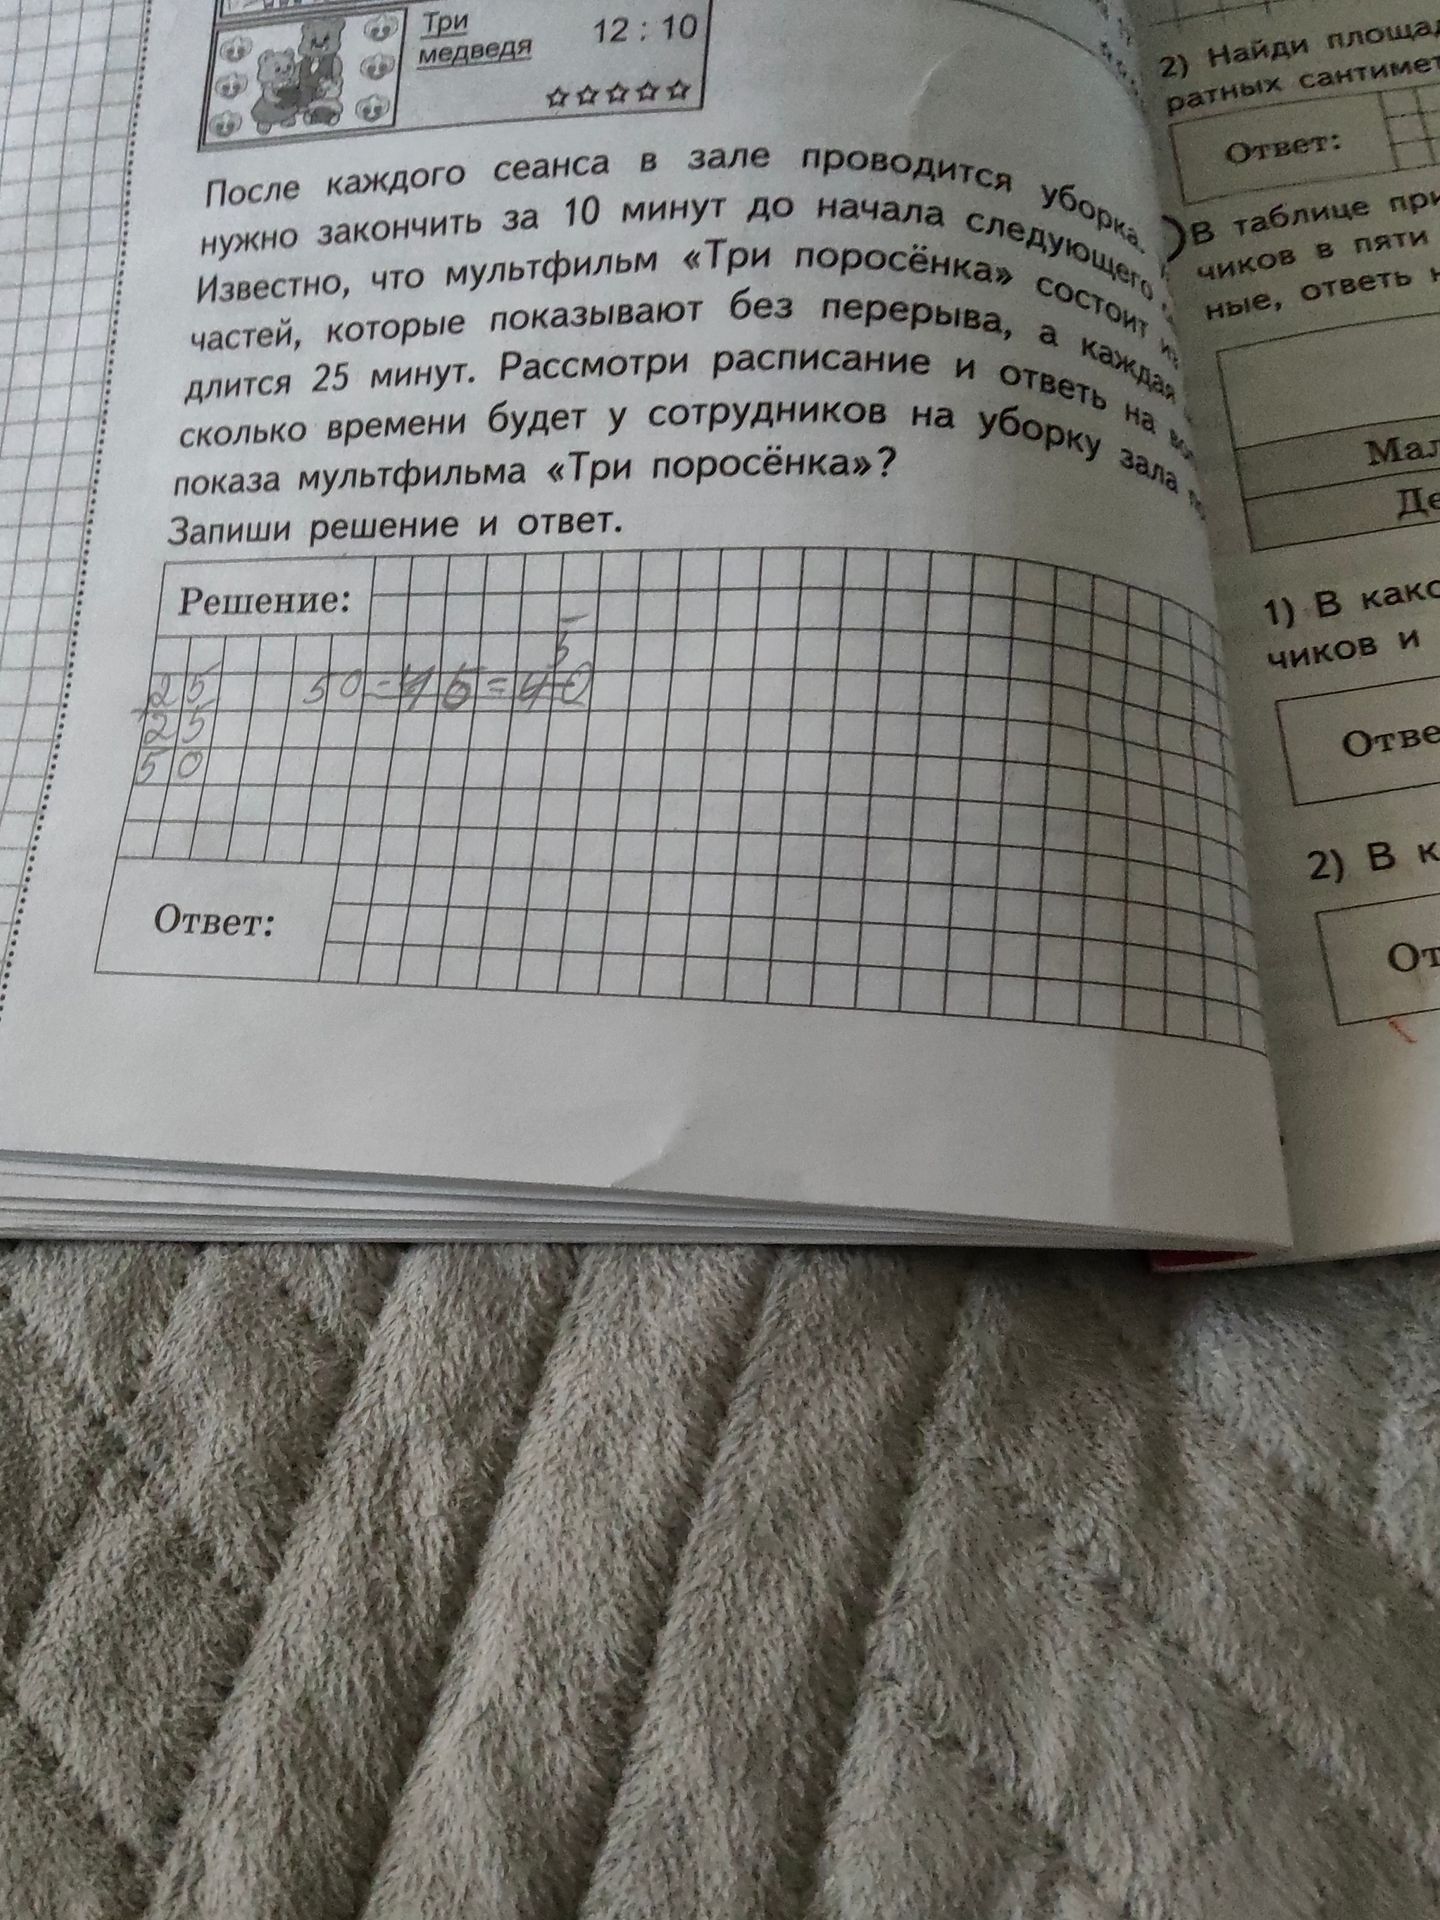 Три
медведя
12 : 10
После каждого сеанса в зале проводится уборка.
нужно закончить за 10 минут до начала следующего
Известно, что мультфильм «Три поросёнка» состоит из
частей, которые показывают без перерыва, а каждая
длится 25 минут. Рассмотри расписание и ответь на
сколько времени будет у сотрудников на уборку зала
показа мультфильма «Три поросёнка»?
Запиши решение и ответ.
Решение:
5
25
50 = 45 = 40
+25
50
Ответ:
2) Найди площад
ратных сантимет
Ответ:
В таблице при
чиков в пяти
ные, ответь н
Мал
Де
1) В како
чиков и
Отве
2) В к
От